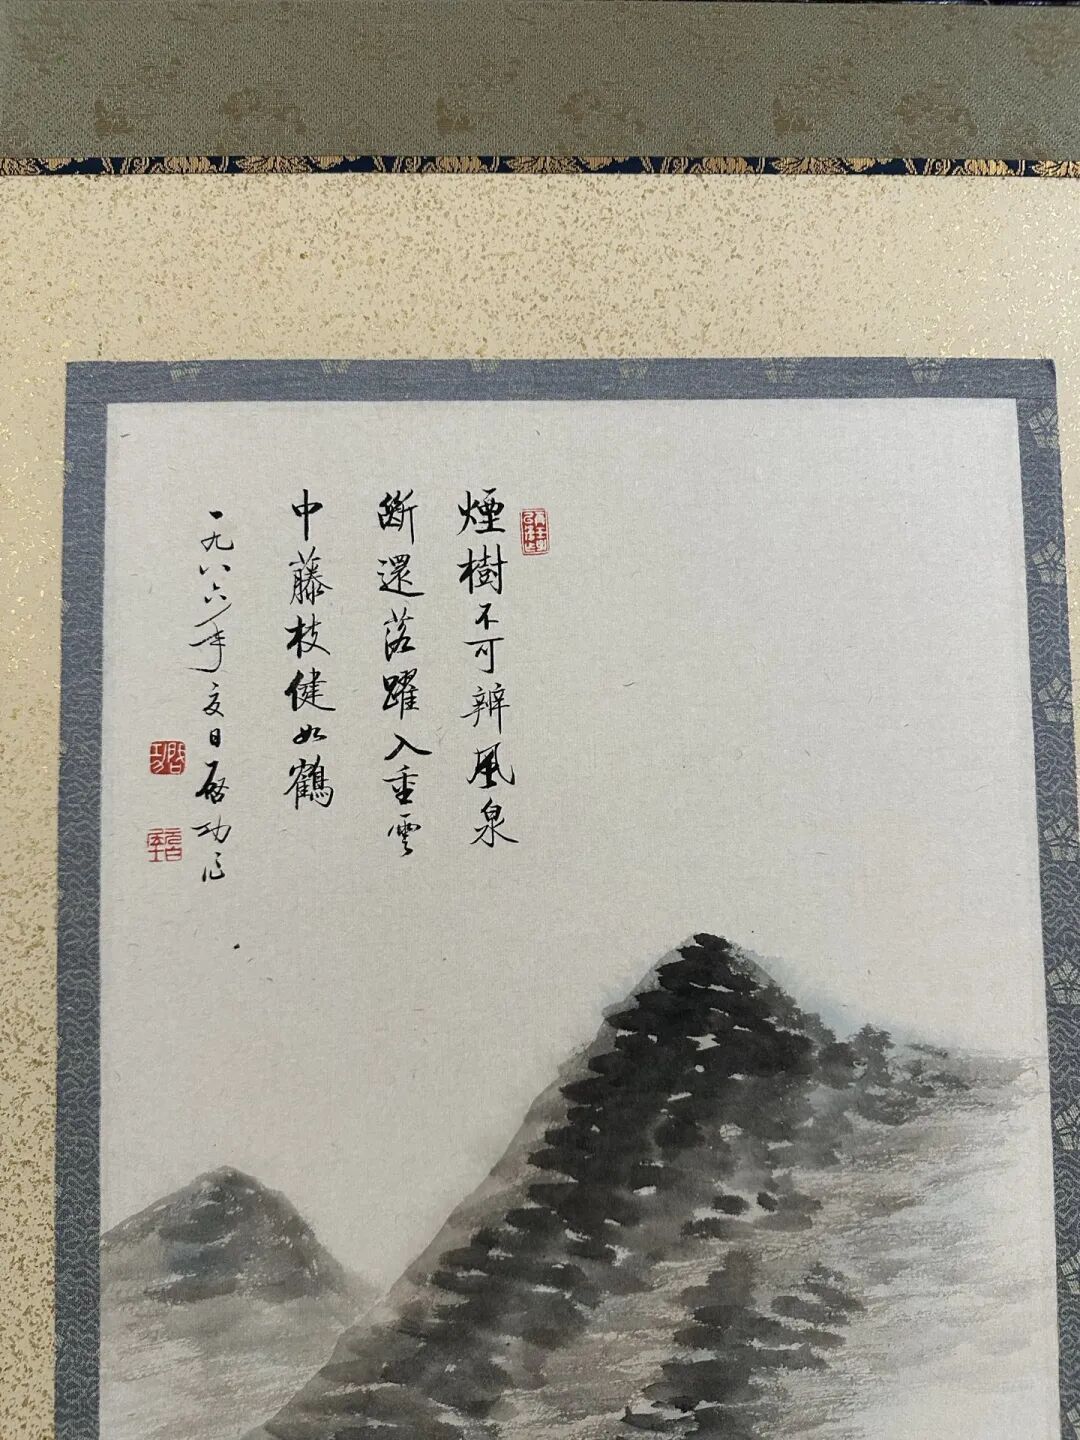 煙樹不可辨風泉
斷還落躍入重雲
中藤枝健如鶴
一九八六年夏日启功
啓功